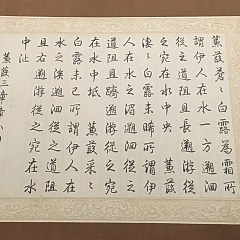 蒹葭蒼々白露為霜所
謂伊人在水一方遡洄
從之道阻且長遡游從
之宛在水中央蒹葭
淒々白露未晞所謂伊
人在水之湄遡洄從之
道阻且躋遡游從之宛
在水中坻蒹葭采々
白露未已所謂伊人在
水之涘遡洄從之道阻
且右遡游從之宛在水
中沚
蒹葭三章章八